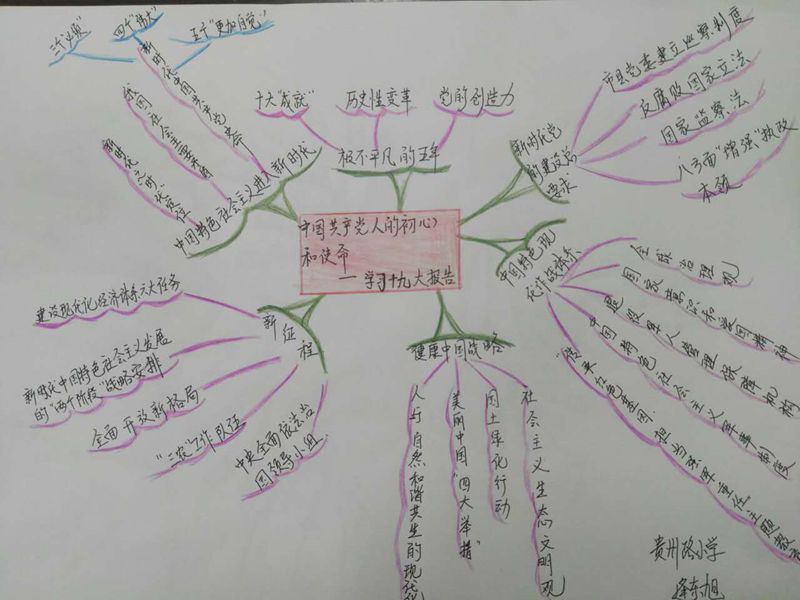 中国共产党人的初心
和使命
—学习十九大报告
极不平凡的五年
十大“成就”
历史性变革
党的创造力
新时代党
的建设总
要求
市县党委建立巡察制度
反腐败国家立法
国家监察法
八方面“增强”执政
本领
中国特色现
代作战体系
全球治理观
国家意识和爱国精神
退役军人管理保障机构
中国特色社会主义军事制度
“传承红色基因、担当强军重任”主题教育
健康中国战略
社会主义生态文明观
国土绿化行动
美丽中国“四大举措”
人与自然和谐共生的现代化
新征程
建设现代化经济体系六大任务
新时代中国特色社会主义发展
的“两个阶段”战略安排
全面开放新格局
“三农”工作队伍
中央全面依法治
国领导小组
中国特色社会主义进入新时代
新时代中国共产党
四个“伟大”
三个“必须”
五个“更加自觉”
我国社会主要矛盾
贵州路小学